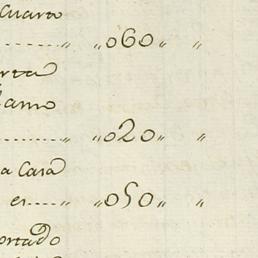 cuarto
........ " "060" "
erta
lamo
........ " "020" "
a Casa
es.... " "050" "
ortado